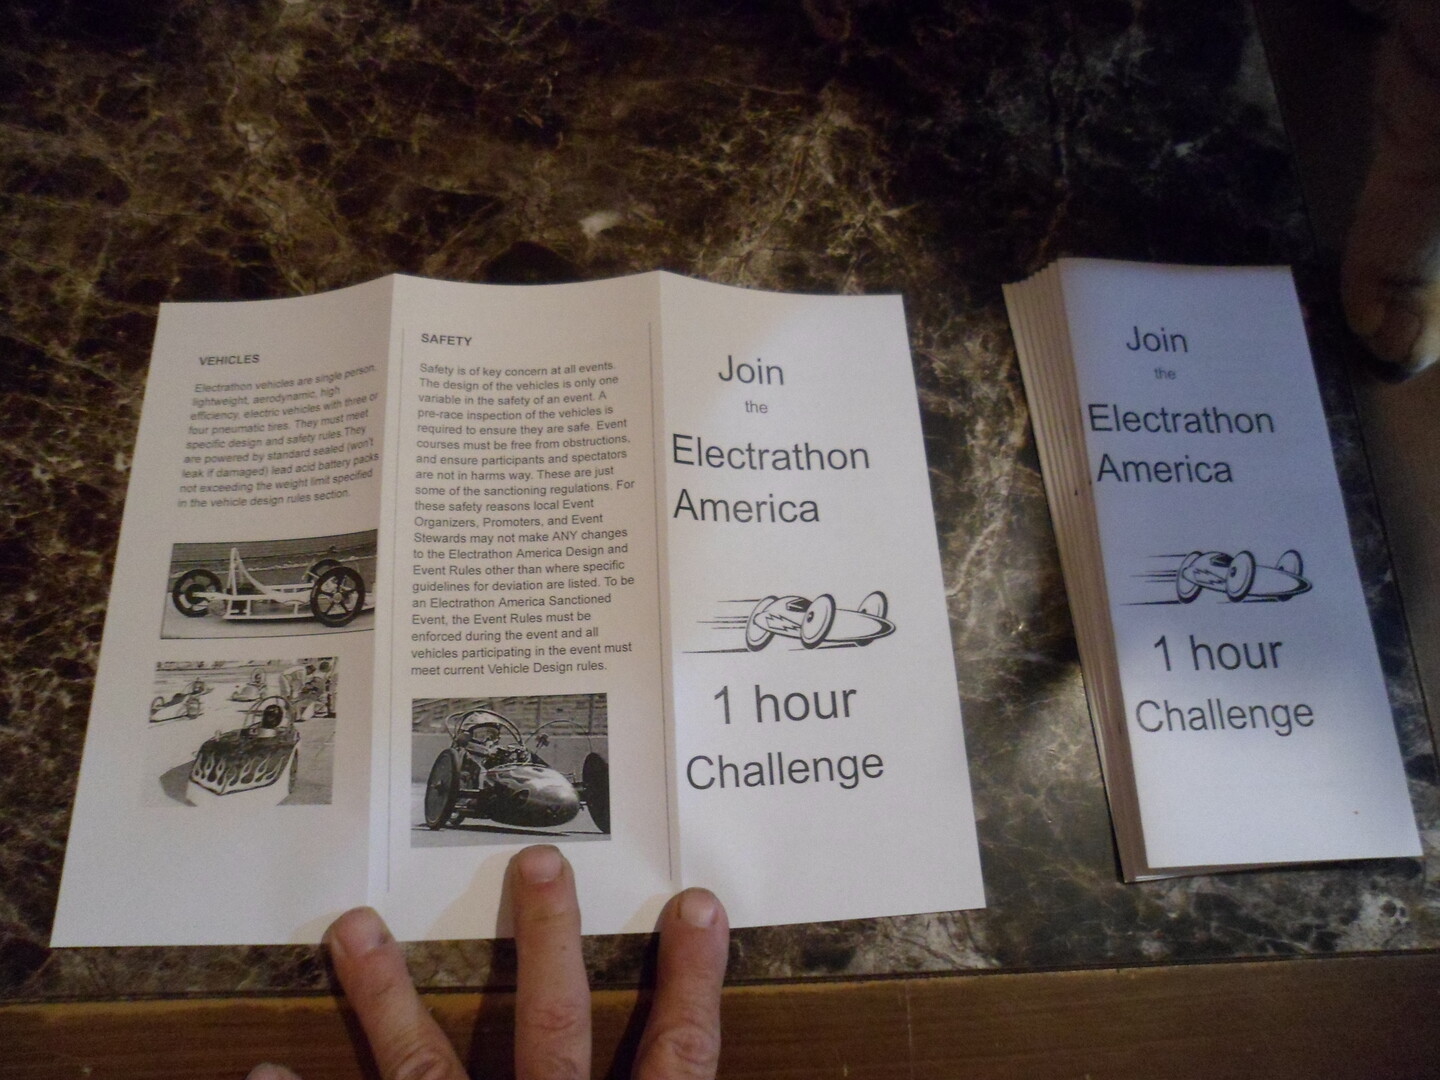 VEHICLES
Electrathon vehicles are single person,
lightweight, aerodynamic, high
efficiency, electric vehicles with three or
four pneumatic tires. They must meet
specific design and safety rules.They
are powered by standard sealed (won't
leak if damaged) lead acid battery packs
not exceeding the weight limit specified
in the vehicle design rules section.
SAFETY
Safety is of key concern at all events.
The design of the vehicles is only one
variable in the safety of an event. A
pre-race inspection of the vehicles is
required to ensure they are safe. Event
courses must be free from obstructions,
and ensure participants and spectators
are not in harms way. These are just
some of the sanctioning regulations. For
these safety reasons local Event
Organizers, Promoters, and Event
Stewards may not make ANY changes
to the Electrathon America Design and
Event Rules other than where specific
guidelines for deviation are listed. To be
an Electrathon America Sanctioned
Event, the Event Rules must be
enforced during the event and all
vehicles participating in the event must
meet current Vehicle Design rules.
Join
the
Electrathon
America
1 hour
Challenge
Join
the
Electrathon
America
1 hour
Challenge